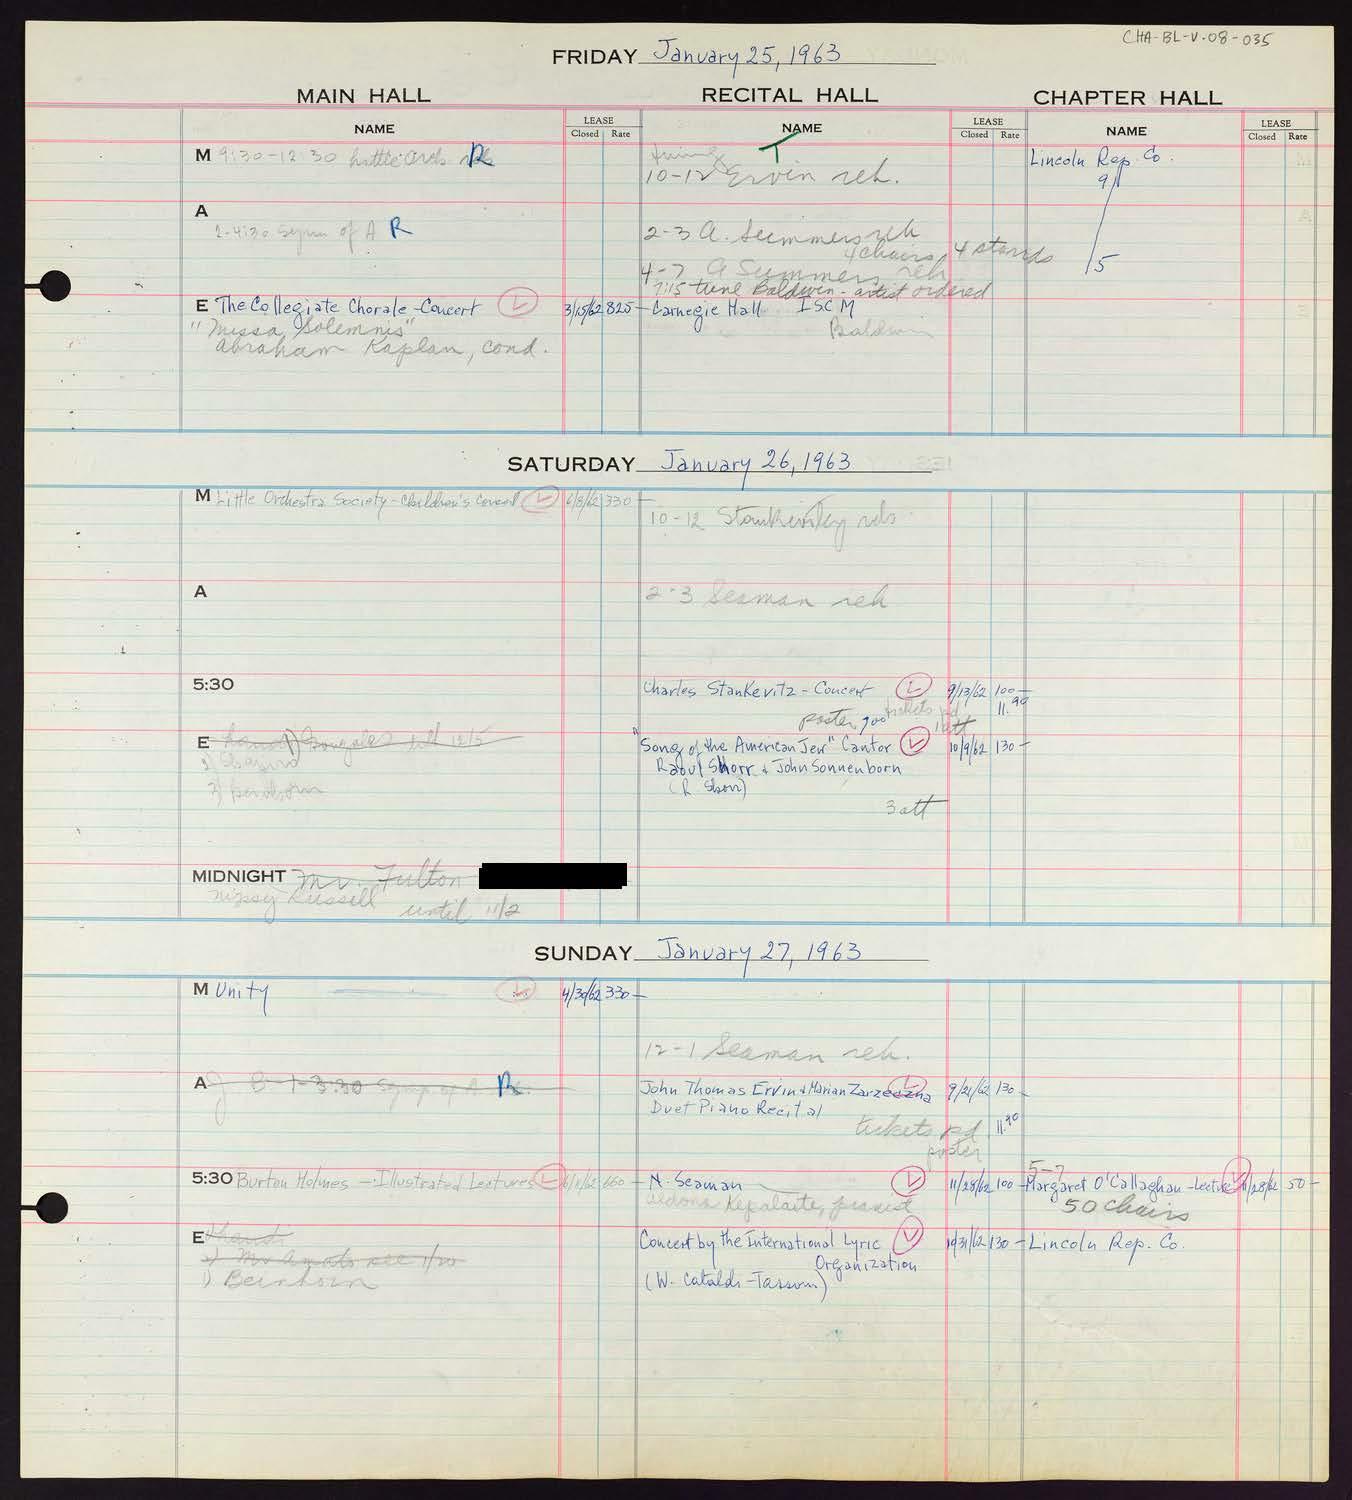 CHA-BL-V-08-035
FRIDAY January 25, 1963
MAIN HALL RECITAL HALL CHAPTER HALL
NAME LEASE Closed Rate NAME LEASE Closed Rate NAME LEASE Closed Rate
M 9:30-12:30 Little Orch. R
T
10-12 Ervin reh.
Lincoln Rep. Co.
9
5
A
2-4:30 Sym of A R
2-3 A. Summers reh
4 chairs, 4 stands
4-7 A Summers reh
7:15 tune Baldwin - artist ordered
E The Collegiate Chorale - Concert L 3/15/62 825-
"Missa Solemnis"
Abraham Kaplan, cond.
Carnegie Hall ISCM
Baldwin
SATURDAY January 26, 1963
M Little Orchestra Society - Children's Concert L 6/8/62 330-
10-12 Stankevitz reh
A
2-3 Seaman reh
5:30
Charles Stankevitz - Concert L 9/13/62 100-
tickets pd 11.90
poster 700
1 att
E Gonzales till 12/5
2) Shapiro
"Song of the American Jew" Cantor L 10/9/62 130-
Raoul Shorr & John Sonnenborn
(R Shorr)
3 att
MIDNIGHT Mr. Fulton
Nipsey Russell
until 11/2
SUNDAY January 27, 1963
M Unity L 4/30/62 330-
12-1 Seaman reh.
A 1-3:30 Symp. of A R
John Thomas Ervin & Marian Zarzeczna L 9/21/62 130-
Duet Piano Recital
tickets pd. 11.90
poster
5:30 Burton Holmes - Illustrated Lectures L 6/1/62 660-
N. Seaman L 11/28/62 100-
Aldona Kepalaite, pianist
5-7
Margaret O'Callaghan - Lecture L 11/28/62 50-
50 chairs
E
2) Mr Amato see 1/20
1) Beinhorn
Concert by the International Lyric L 10/31/62 130-
Organization
(W. Cataldi-Tassoni)
Lincoln Rep. Co.